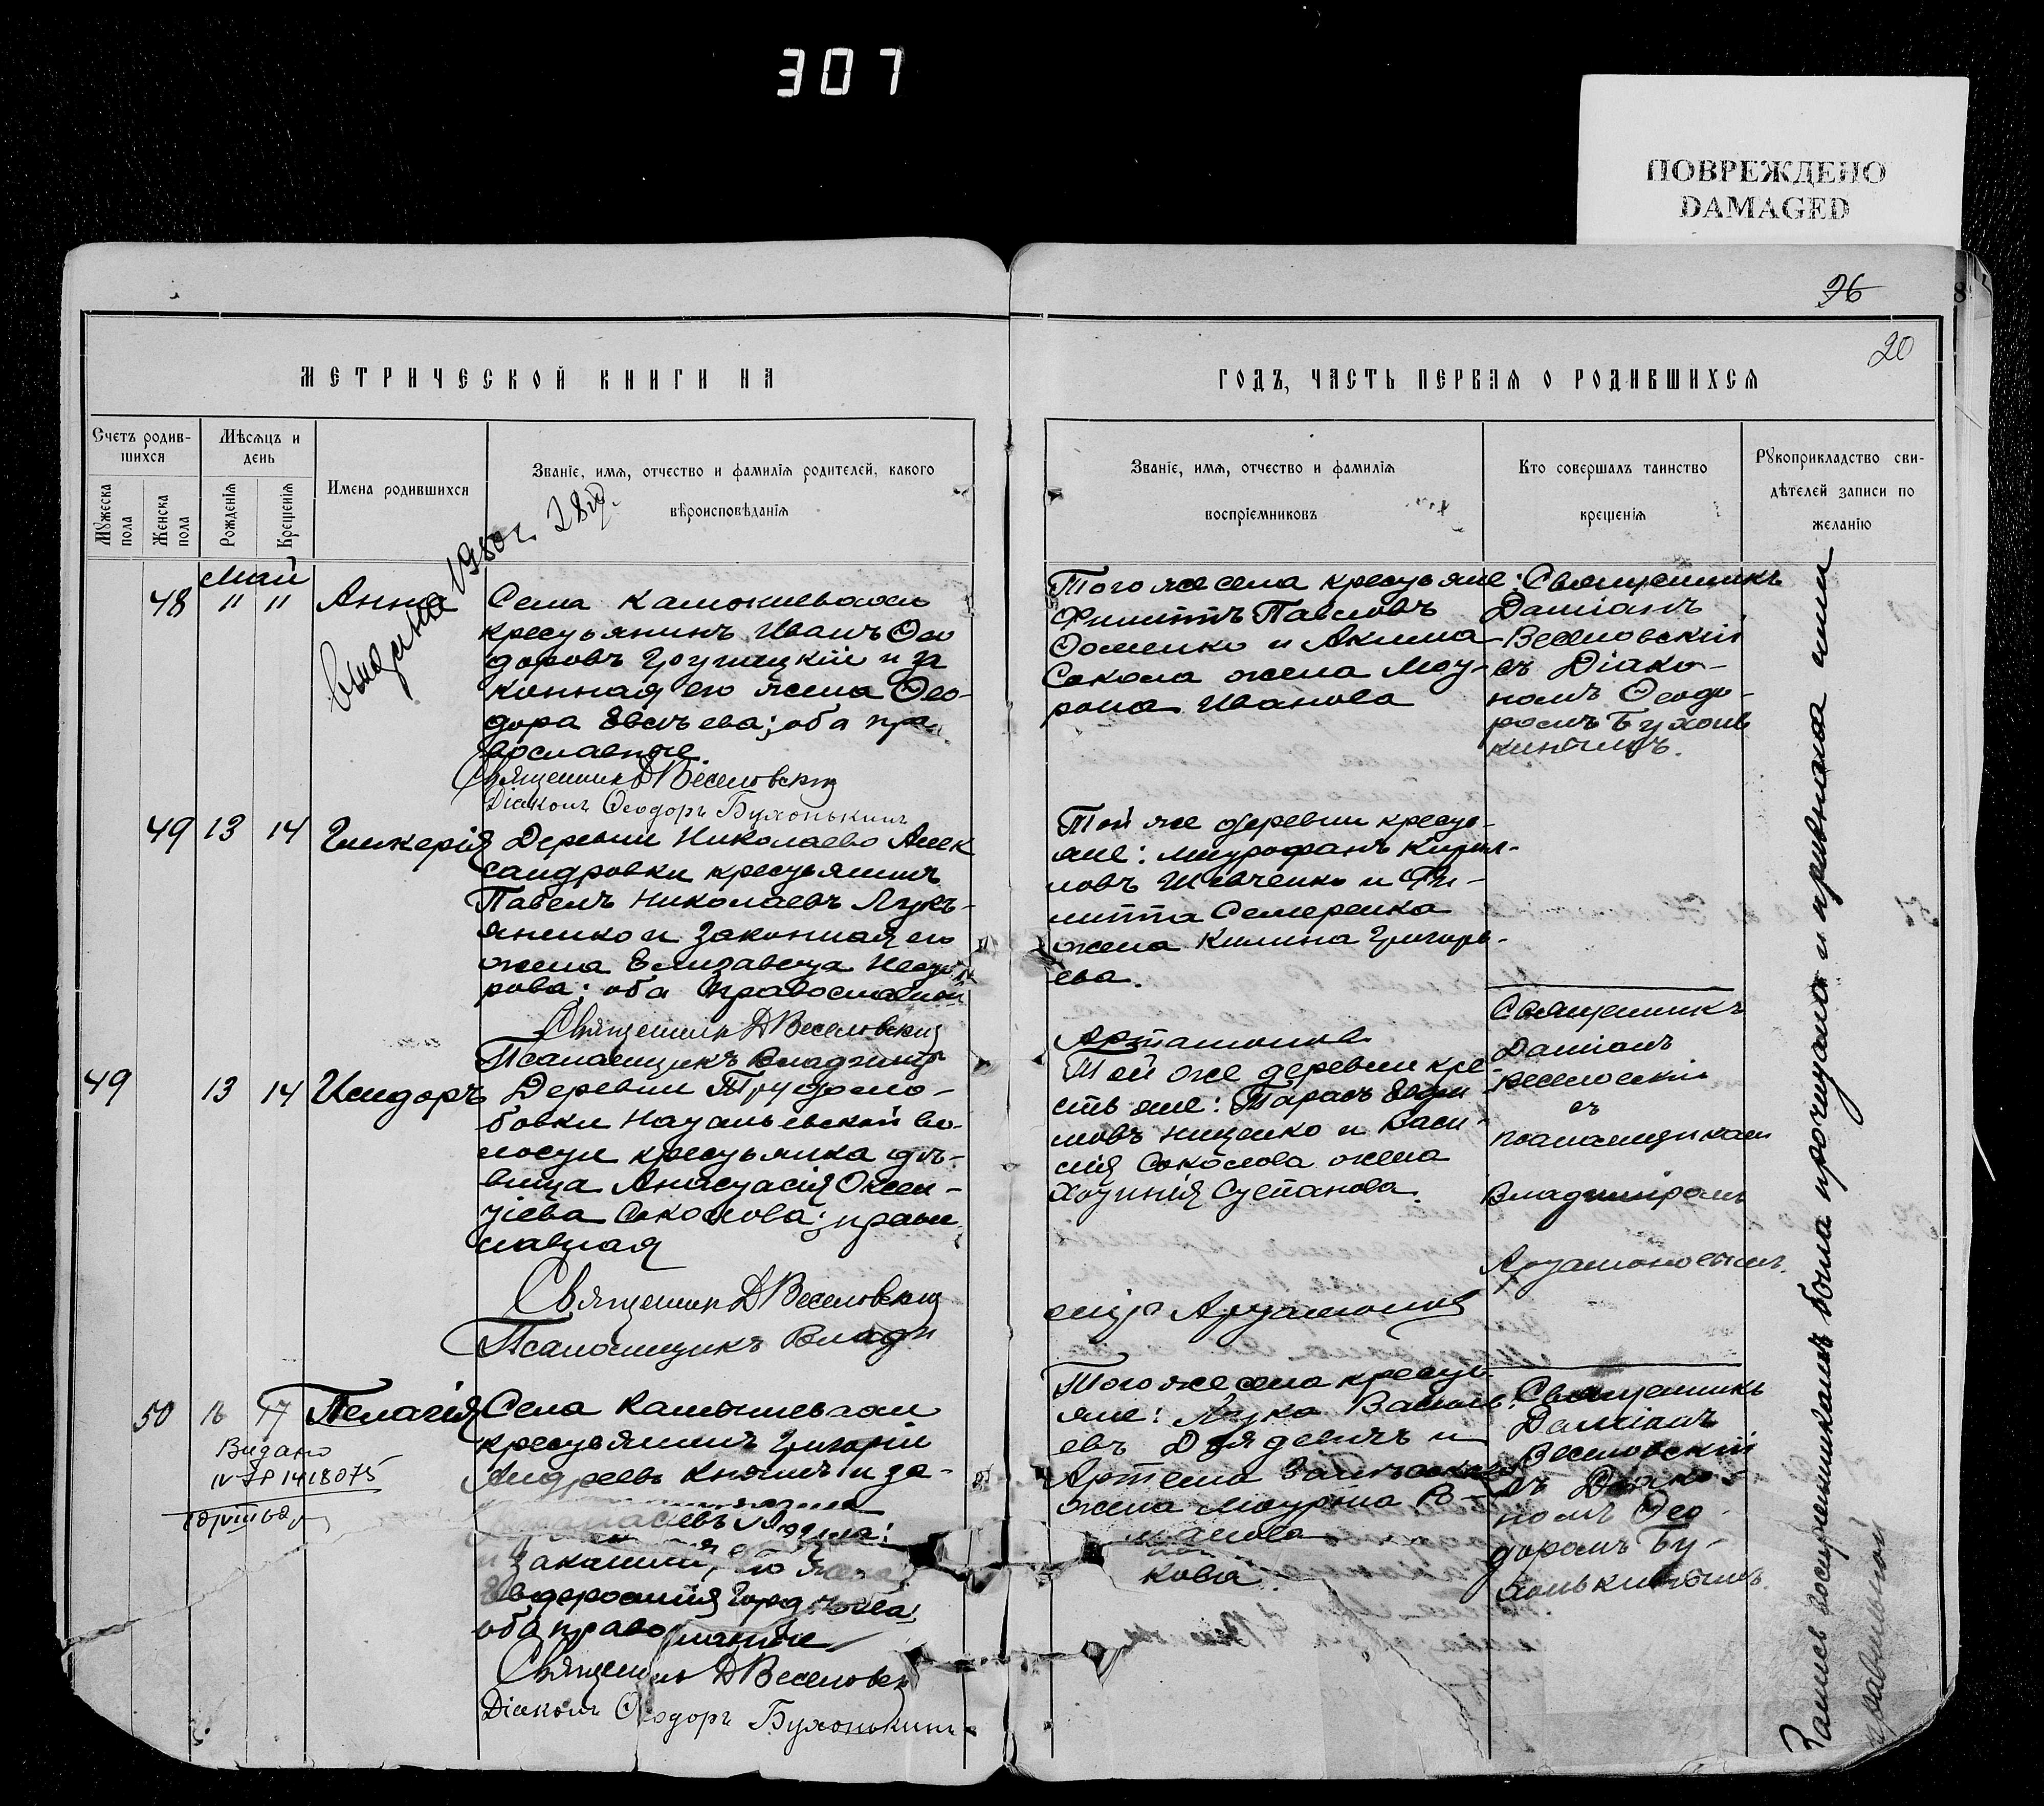 307
ПОВРЕЖДЕНО
DAMAGED
26
20
МЕТРИЧЕСКОЙ КНИГИ НА
ГОДЪ, ЧАСТЬ ПЕРВАЯ О РОДИВШИХСЯ
Счетъ родив-
шихся
Мѣсяцъ и
день
Мужеска
пола
Женска
пола
Рожденія
Крещенія
Имена родившихся
Званіе, имя, отчество и фамилія родителей, какого
вѣроисповѣданія
Званіе, имя, отчество и фамилія
воспріемниковъ
Кто совершалъ таинство
крещенія
Рукоприкладство сви-
дѣтелей записи по
желанію
Май
48 11 11 Анна
Села
крестьянинъ Иванъ Ѳео
доровъ и за
конная его жена Ѳео-
дора ; оба пра
вославные.
Священникъ Д Веселовскій
Діаконъ Ѳеодоръ Бухонькинъ
Того же села крестьяне:
Филиппъ Павловъ
Ооменко и Акима
Сокола жена Мот-
рона Иванова
Священникъ
Даміанъ
Веселовскій
съ Діако-
номъ Ѳеодо-
ромъ Бухонь
кинымъ.
49 13 14 Гликерія
Деревни Николаево Алек
сандровки крестьянинъ
Павелъ Николаевъ Лукъ-
яненко и законная его
жена Елизавета
рова; оба православные
Священникъ Д Веселовскій
Псаломщикъ Владимір
Той же деревни кресть-
яне: Митрофанъ Кирил-
ловъ Шевченко и Фи-
липпа Семеренка
жена Килина Григорь-
ева.
Артамоновъ
49 13 14 Исидоръ
Деревни Трудолю-
бовки во-
лости крестьянка дѣ-
вица Анастасія
Соколова; право
славная
Священникъ Д Веселовскій
Псаломщикъ Влади
Той же деревни кре
стьяне: Тарасъ
мовъ Нищенко и Васи
лія Соколова жена
Хотинія Степанова.
міръ Артамоновъ
Священникъ
Даміанъ
Веселовскій
съ
псаломщикомъ
Владиміромъ
Артамоновымъ.
50 16 17 Пелагія
Видано
IV-ЯР 1418075
Села
крестьянинъ Григорій
Андреевъ и за-
законная его жена
оба православные
Священникъ Д Веселовск
Діаконъ Ѳеодоръ Бухонькинъ
Того же села кресть-
яне: Лука Василь
евъ и
Артема
жена Мотрона Ро-
манова
кова.
Священникъ
Даміанъ
Веселовскій
съ Діако-
номъ Ѳео-
доромъ Бу-
хонькинымъ.
Запись воспріемникамъ была прочитана и признана ими
правильной